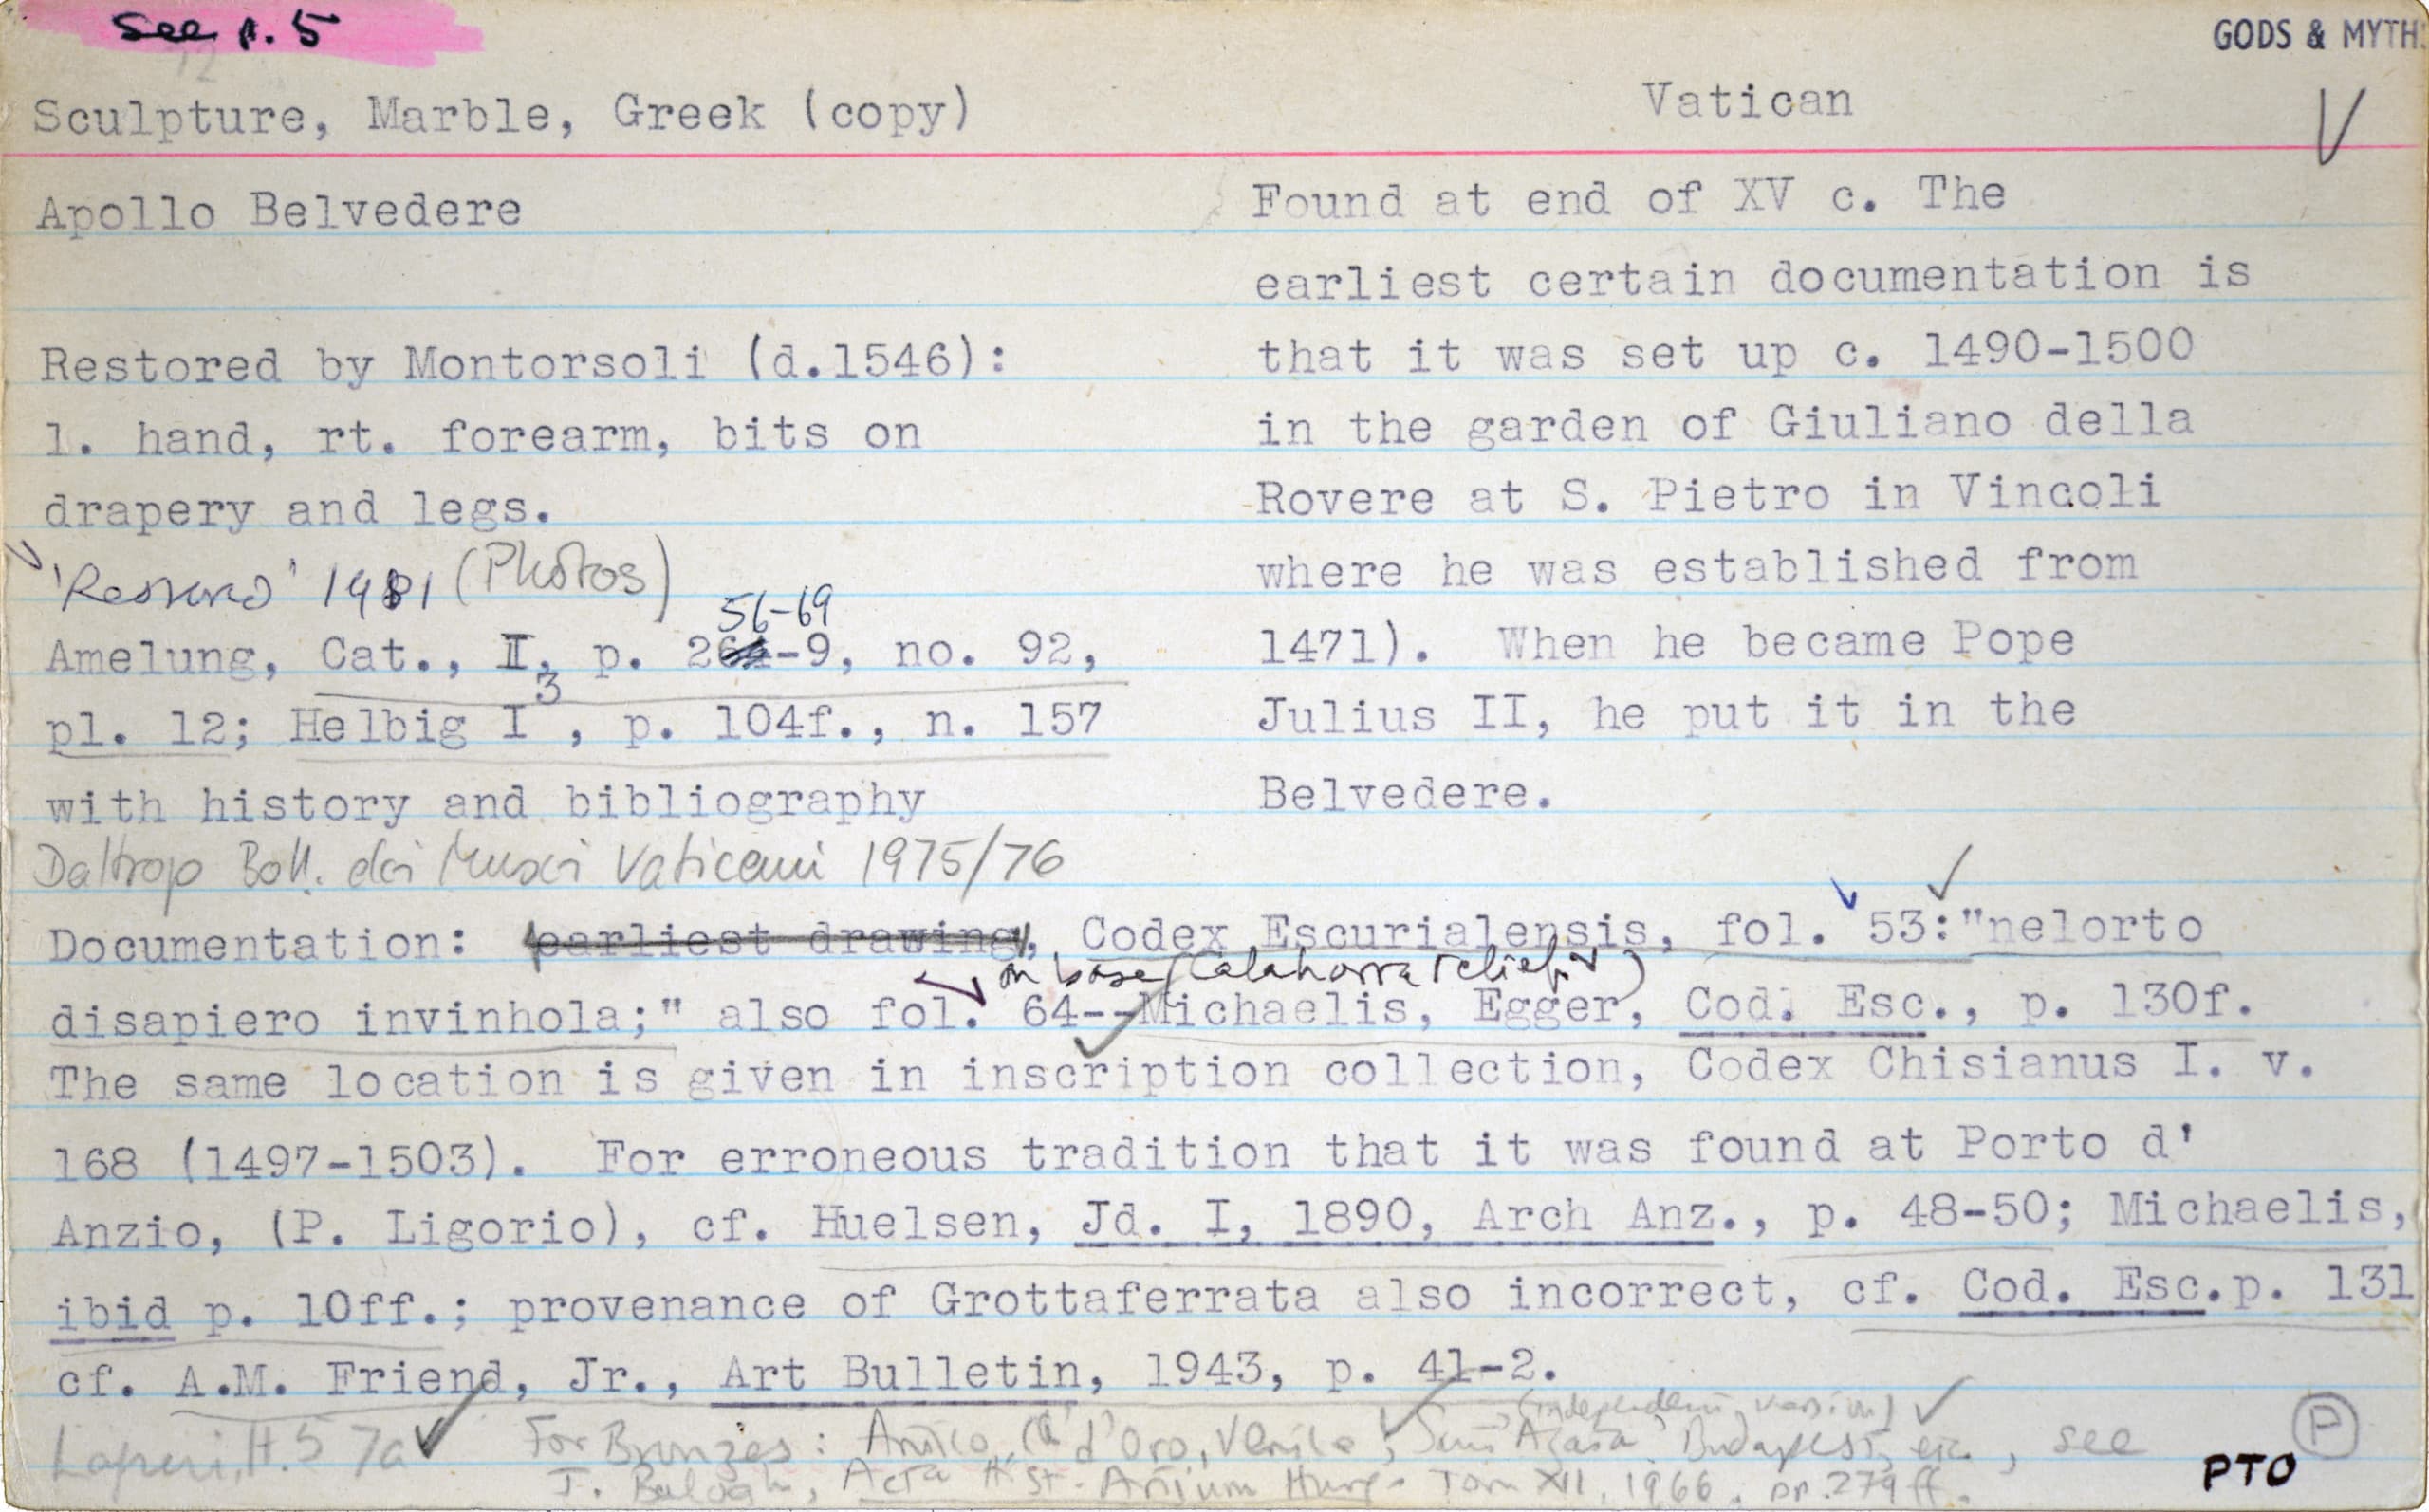 See p. 5
GODS & MYTHS
Sculpture, Marble, Greek (copy)
Vatican
V
Apollo Belvedere
Restored by Montorsoli (d.1546):
l. hand, rt. forearm, bits on
drapery and legs.
'Restored' 1981 (Photos)
56-69
Amelung, Cat., II, p. 264-9, no. 92,
pl. 12; Helbig I3, p. 104f., n. 157
with history and bibliography
Daltrop Boll. dei Musei Vaticani 1975/76
Found at end of XV c. The
earliest certain documentation is
that it was set up c. 1490-1500
in the garden of Giuliano della
Rovere at S. Pietro in Vincoli
where he was established from
1471). When he became Pope
Julius II, he put it in the
Belvedere.
Documentation: earliest drawing, Codex Escurialensis, fol. 53:"nelorto
on base (Calahorra relief)
disapiero invinhola;" also fol. 64--Michaelis, Egger, Cod. Esc., p. 130f.
The same location is given in inscription collection, Codex Chisianus I. v.
168 (1497-1503). For erroneous tradition that it was found at Porto d'
Anzio, (P. Ligorio), cf. Huelsen, Jd. I, 1890, Arch Anz., p. 48-50; Michaelis,
ibid p. 10ff.; provenance of Grottaferrata also incorrect, cf. Cod. Esc.p. 131
cf. A.M. Friend, Jr., Art Bulletin, 1943, p. 41-2.
(independent version)
Laperi, H.5 7a For Bronzes: Antico, Ca' d'Oro, Venice; Budapest, etc, see
J. Balogh, Acta Hist. Artium Hung. Tom XII, 1966, pp. 279ff.
P
PTO